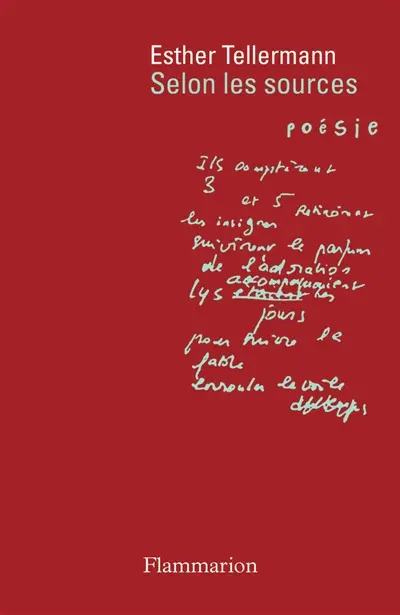 Esther Tellermann
Selon les sources
poésie
Ils comptèrent
3
et 5 Retinrent
les insignes
suivirent le parfum
de l'adoration
accompagnaient
lys les
jours
pour suivre le
fable
le voile
Flammarion